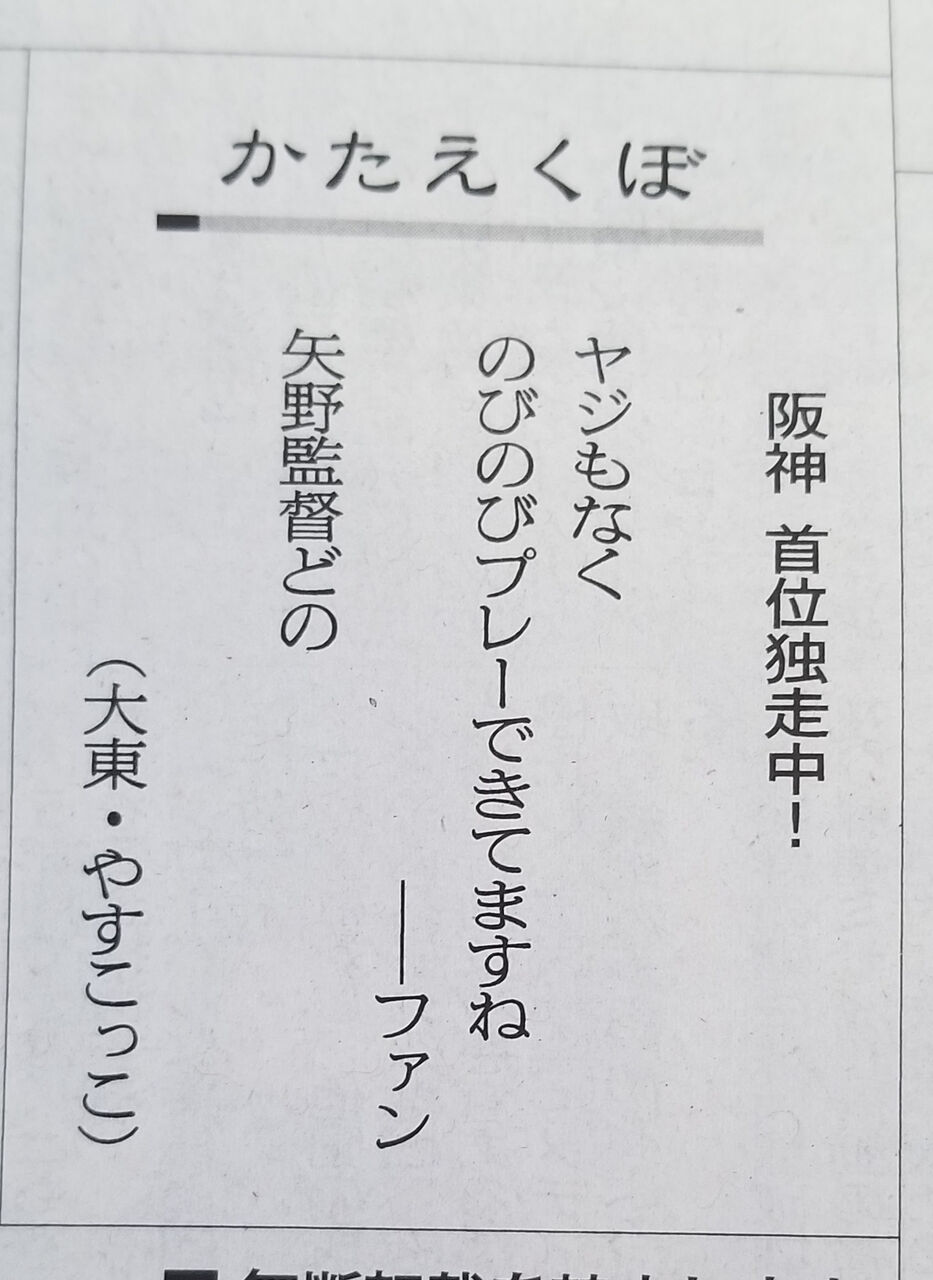 かたえくぼ
阪神 首位独走中!
ヤジもなく
のびのびプレーできてますね
――ファン
矢野監督どの
(大東・やすこっこ)